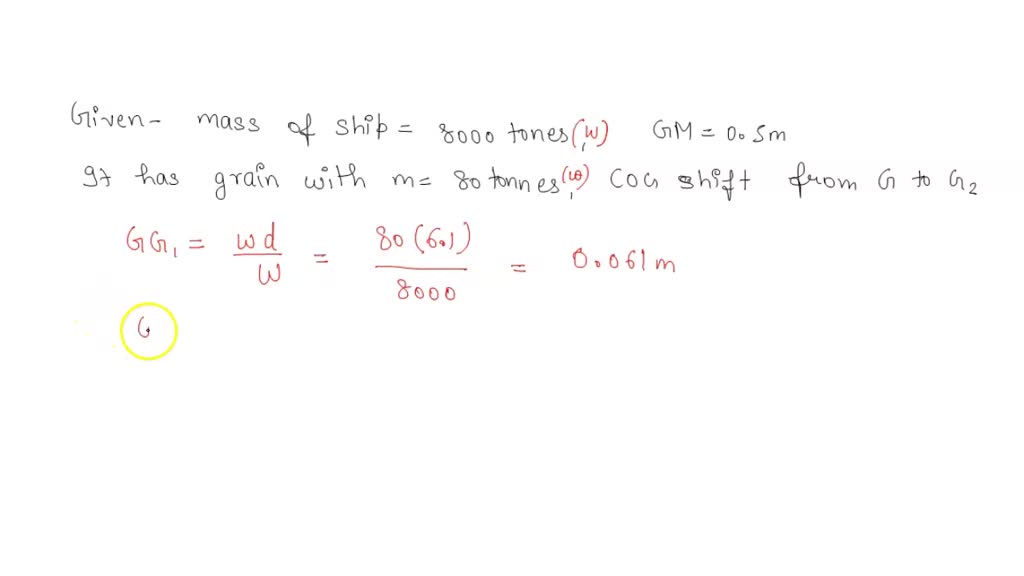 Given- mass of ship = 8000 tones(W) GM = 0.5m
It has grain with m= 80 tonnes,(w) COG shift from G to G2
GG1 = wd/W = 80(6.1)/8000 = 0.061m
G